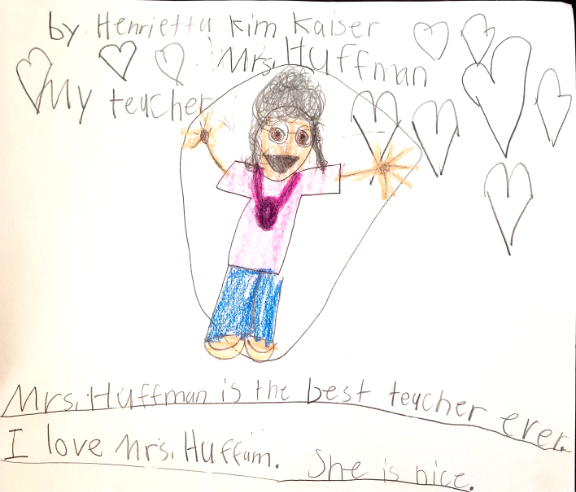 by Henrietta Kim Kaiser
Mrs. Huffman
My teacher
Mrs. Huffman is the best teacher ever.
I love Mrs. Huffam. She is nice.